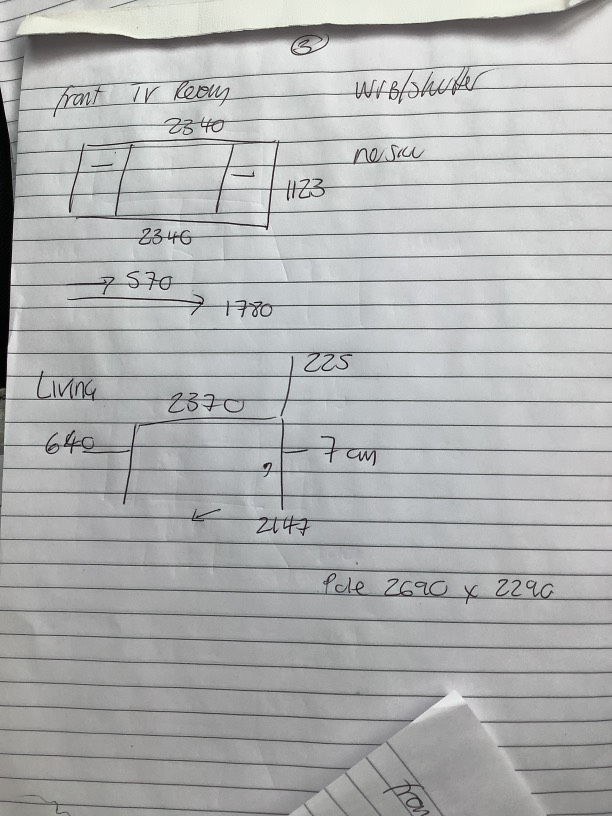 3
front TV Room
WVB/shutter
2340
no sill
1123
2340
570
1780
225
Living
2370
640
7cm
2147
Pole 2690 x 2290